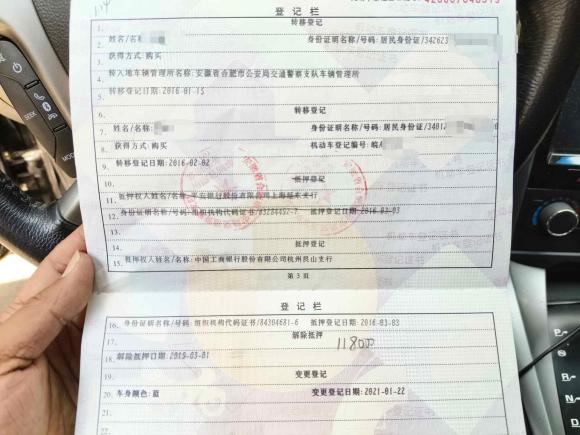 登记栏
1. 转移登记
2. 姓名/名 身份证明名称/号码:居民身份证/342623
3. 获得方式:购买
4. 转入地车辆管理所名称:安徽省合肥市公安局交通警察支队车辆管理所
5. 转移登记日期:2016-01-15
6. 转移登记
7. 姓名/名称: 身份证明名称/号码:居民身份证/3401
8. 获得方式:购买 机动车登记编号:皖A
9. 转移登记日期:2016-02-02
10. 抵押登记
11. 抵押权人姓名/名称:平安银行股份有限公司上海 支行
12. 身份证明名称/号码:组织机构代码证书/83284452-7 抵押登记日期:2016-03-03
13.
14. 抵押登记
15. 抵押权人姓名/名称:中国工商银行股份有限公司杭州艮山支行
第 3 页
登记栏
16. 身份证明名称/号码:组织机构代码证书/84304681-6 抵押登记日期:2016-03-03
17. 解除抵押
118000
18. 解除抵押日期:2019-03-01
19. 变更登记
20. 车身颜色:蓝 变更登记日期:2021-01-22
21.
22.
SEEK
MODE